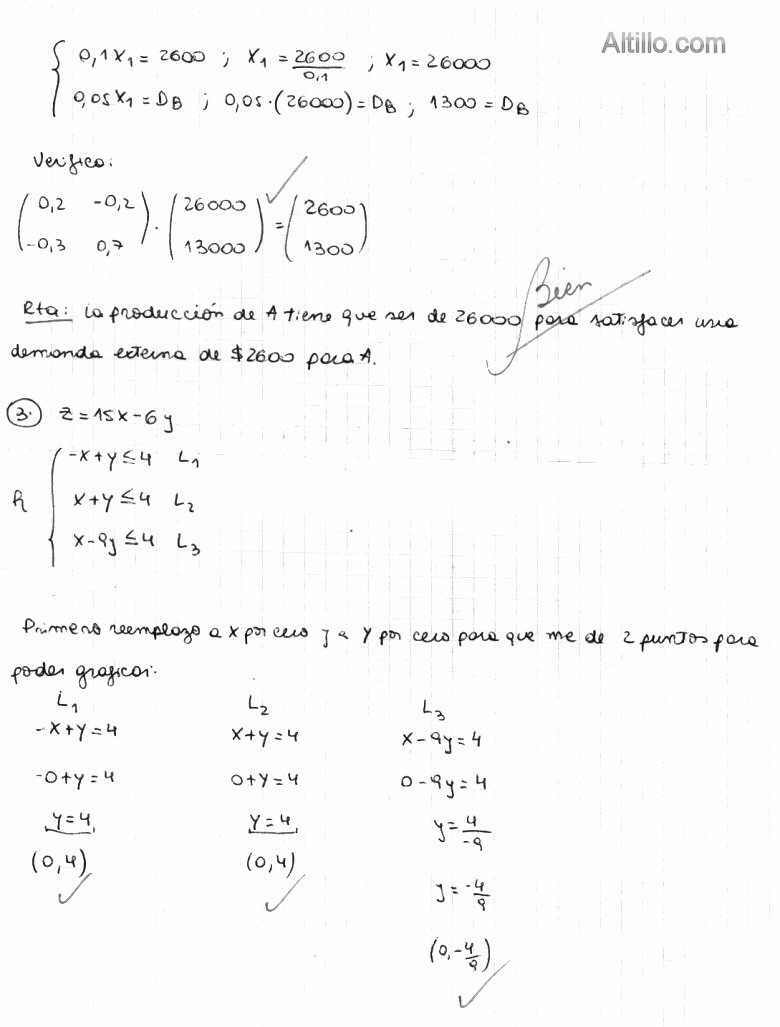 Altillo.com
0,1X₁ = 2600 ; X₁ = 2600/0,1 ; X₁ = 26000
0,05X₁ = DB ; 0,05·(26000) = DB ; 1300 = DB
Verifico:
(0,2 -0,2 / -0,3 0,7) · (26000 / 13000) = (2600 / 1300)
Bien
Rta: La producción de A tiene que ser de 26000 para satisfacer una
demanda externa de $2600 para A.
3. Z = 15X - 6y
-X + y ≤ 4 L₁
R X + y ≤ 4 L₂
X - 9y ≤ 4 L₃
Primero reemplazo a X por cero y a Y por cero para que me de 2 puntos para
poder graficar.
L₁ L₂ L₃
-X + Y = 4 X + Y = 4 X - 9y = 4
-0 + y = 4 0 + Y = 4 0 - 9y = 4
y = 4 Y = 4 y = 4/-9
(0,4) (0,4) y = -4/9
(0, -4/9)